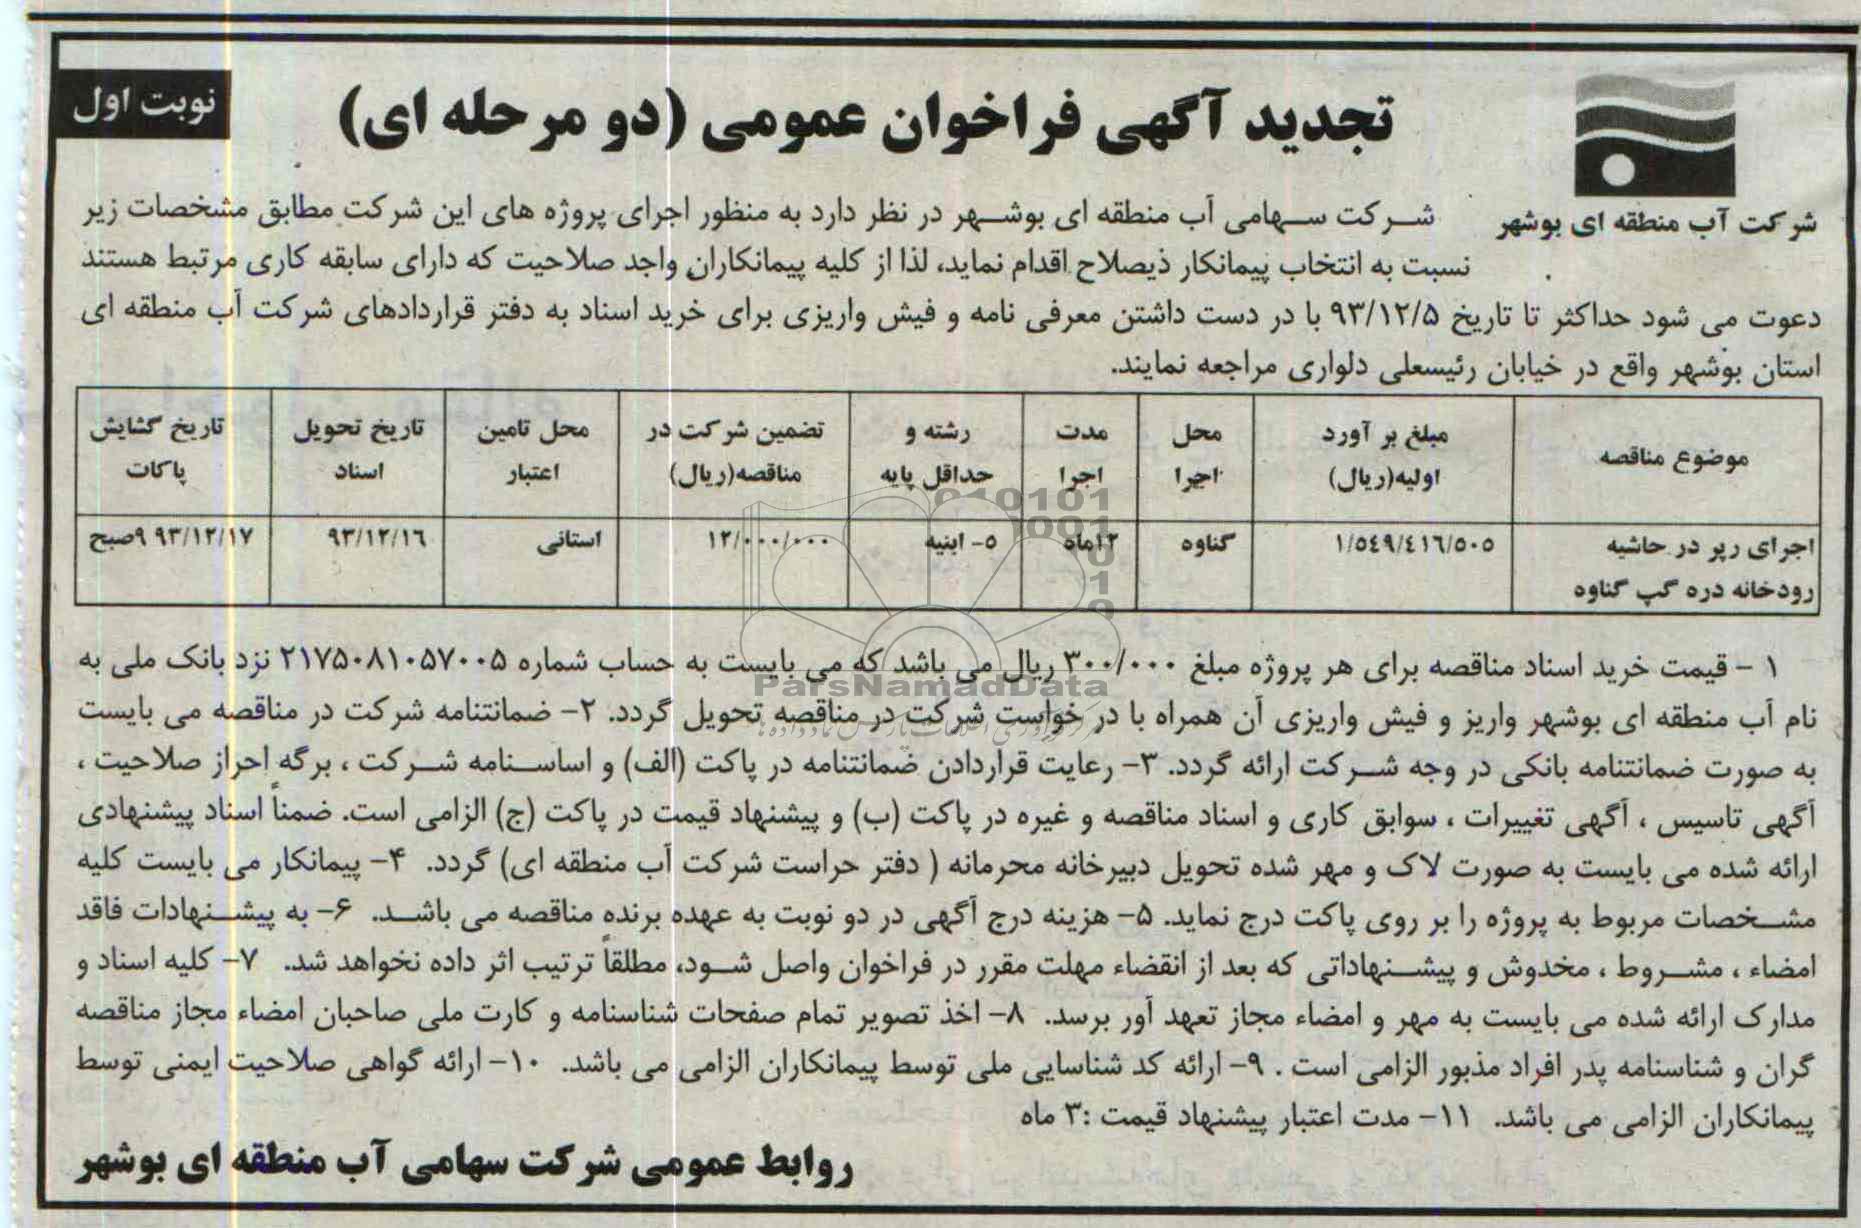 تجدید آگهی فراخوان عمومی (دو مرحله ای)
نوبت اول
شرکت آب منطقه ای بوشهر
شرکت سهامی آب منطقه ای بوشهر در نظر دارد به منظور اجرای پروژه های این شرکت مطابق مشخصات زیر
نسبت به انتخاب پیمانکار ذیصلاح اقدام نماید، لذا از کلیه پیمانکاران واجد صلاحیت که دارای سابقه کاری مرتبط هستند
دعوت می شود حداکثر تا تاریخ ۹۳/۱۲/۵ با در دست داشتن معرفی نامه و فیش واریزی برای خرید اسناد به دفتر قراردادهای شرکت آب منطقه ای
استان بوشهر واقع در خیابان رئیسعلی دلواری مراجعه نمایند.
موضوع مناقصه | مبلغ بر آورد اولیه(ریال) | محل اجرا | مدت اجرا | رشته و حداقل پایه | تضمین شرکت در مناقصه(ریال) | محل تامین اعتبار | تاریخ تحویل اسناد | تاریخ گشایش پاکات
اجرای رپر در حاشیه رودخانه دره گپ گناوه | ۱/۵۴۹/۴۱۶/۵۰۵ | گناوه | ۱۲ماه | ۵- ابنیه | ۱۲/۰۰۰/۰۰۰ | استانی | ۹۳/۱۲/۱۶ | ۹۳/۱۲/۱۷ ۹صبح
۱ - قیمت خرید اسناد مناقصه برای هر پروژه مبلغ ۳۰۰/۰۰۰ ریال می باشد که می بایست به حساب شماره ۲۱۷۵۰۸۱۰۵۷۰۰۵ نزد بانک ملی به
نام آب منطقه ای بوشهر واریز و فیش واریزی آن همراه با در خواست شرکت در مناقصه تحویل گردد. ۲- ضمانتنامه شرکت در مناقصه می بایست
به صورت ضمانتنامه بانکی در وجه شرکت ارائه گردد. ۳- رعایت قراردادن ضمانتنامه در پاکت (الف) و اساسنامه شرکت ، برگه احراز صلاحیت ،
آگهی تاسیس ، آگهی تغییرات ، سوابق کاری و اسناد مناقصه و غیره در پاکت (ب) و پیشنهاد قیمت در پاکت (ج) الزامی است. ضمناً اسناد پیشنهادی
ارائه شده می بایست به صورت لاک و مهر شده تحویل دبیرخانه محرمانه ( دفتر حراست شرکت آب منطقه ای) گردد. ۴- پیمانکار می بایست کلیه
مشخصات مربوط به پروژه را بر روی پاکت درج نماید. ۵- هزینه درج آگهی در دو نوبت به عهده برنده مناقصه می باشد. ۶- به پیشنهادات فاقد
امضاء ، مشروط ، مخدوش و پیشنهاداتی که بعد از انقضاء مهلت مقرر در فراخوان واصل شود، مطلقاً ترتیب اثر داده نخواهد شد. ۷- کلیه اسناد و
مدارک ارائه شده می بایست به مهر و امضاء مجاز تعهد آور برسد. ۸- اخذ تصویر تمام صفحات شناسنامه و کارت ملی صاحبان امضاء مجاز مناقصه
گران و شناسنامه پدر افراد مذبور الزامی است . ۹- ارائه کد شناسایی ملی توسط پیمانکاران الزامی می باشد. ۱۰- ارائه گواهی صلاحیت ایمنی توسط
پیمانکاران الزامی می باشد. ۱۱- مدت اعتبار پیشنهاد قیمت :۳ ماه
روابط عمومی شرکت سهامی آب منطقه ای بوشهر
ParsNamadData